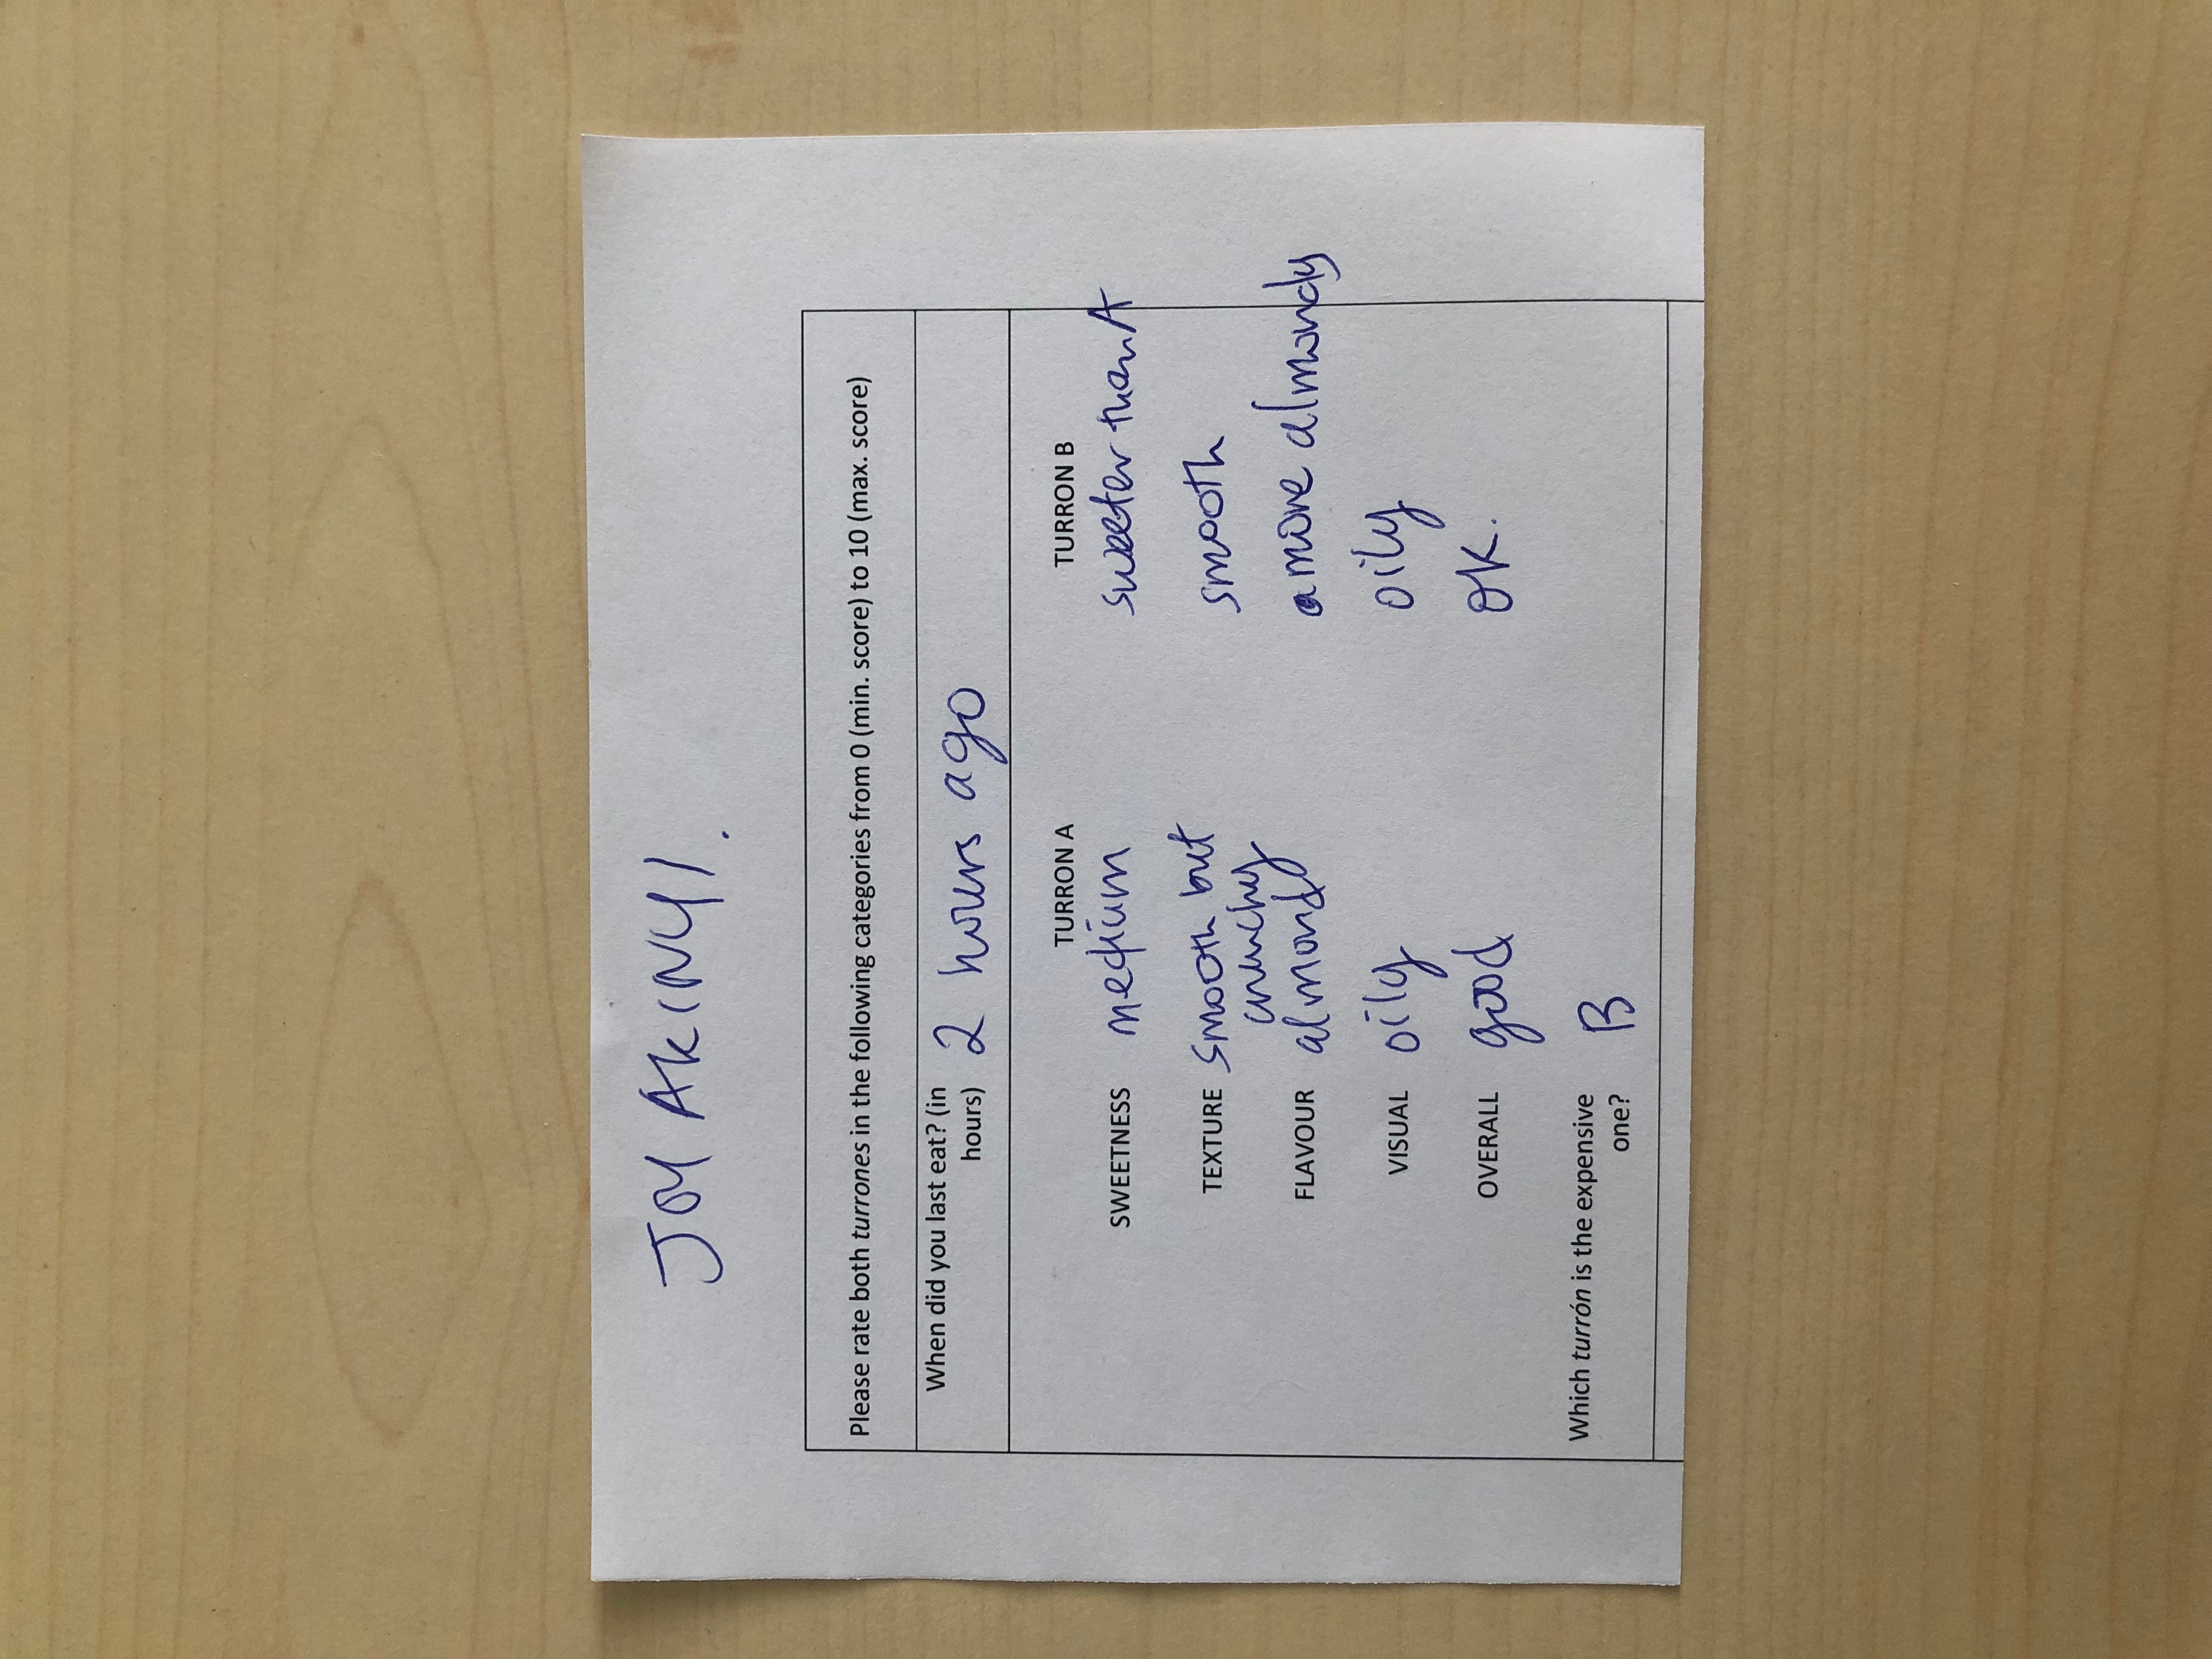 JOY AKINYI.
Please rate both turrones in the following categories from 0 (min. score) to 10 (max. score)
When did you last eat? (in
hours)
2 hours ago
TURRON A TURRON B
SWEETNESS medium sweeter than A
TEXTURE smooth but smooth
crunchy
FLAVOUR almond more almondy
VISUAL oily oily
OVERALL good ok.
Which turrón is the expensive
one?
B